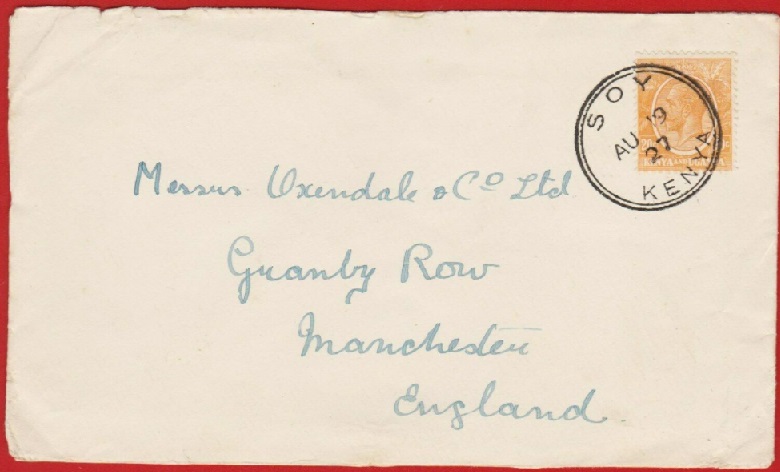 SOY
AU 19
27
KENYA
KENYA AND UGANDA
Messrs Oxendale & Co Ltd
Granby Row
Manchester
England